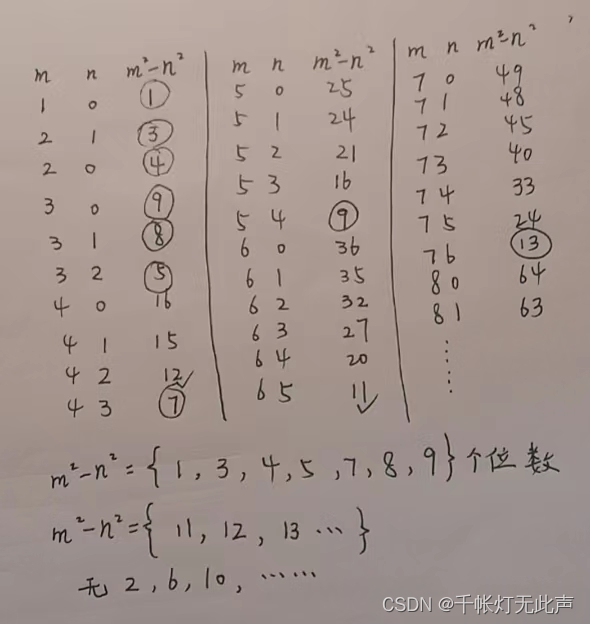 m n m²-n²
1 0 1
2 1 3
2 0 4
3 0 9
3 1 8
3 2 5
4 0 16
4 1 15
4 2 12
4 3 7
m n m²-n²
5 0 25
5 1 24
5 2 21
5 3 16
5 4 9
6 0 36
6 1 35
6 2 32
6 3 27
6 4 20
6 5 11
m n m²-n²
7 0 49
7 1 48
7 2 45
7 3 40
7 4 33
7 5 24
7 6 13
8 0 64
8 1 63
⋮
m²-n²={1,3,4,5,7,8,9}个位数
m²-n²={11,12,13…}
无2,6,10,……
CSDN @千帐灯无此声